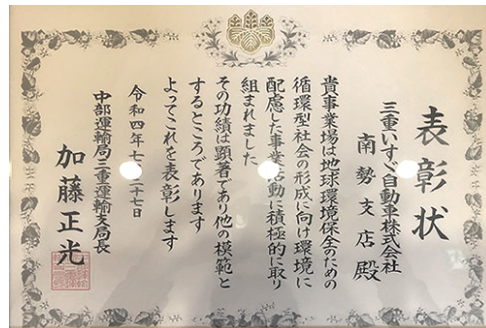 表彰状
三重いすゞ自動車株式会社
南勢支店殿
貴事業場は地球環境保全のための
循環型社会の形成に向け環境に
配慮した事業活動に積極的に取り
組まれました
その功績は顕著であり他の模範と
するところであります
よってこれを表彰します
令和四年七 二十七日
中部運輸局三重運輸支局長
加藤正光